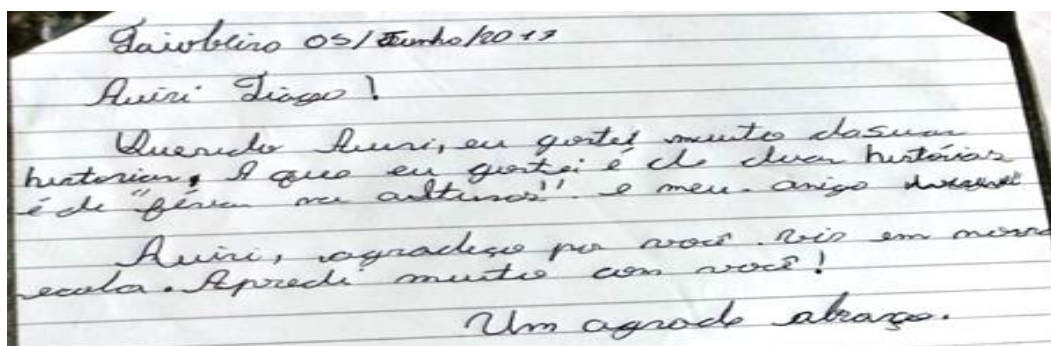 Taiobeiro 05/Junho/2017
Auiri Tiago!
Querido Auiri, eu gostei muito dasuas
historias, A que eu gostei é de duas histórias
é de "férias nas alturas" e meu amigo
Auiri, agradeço por você vir em nossa
escola. Apredi muito com você!
Um agrado abraço.